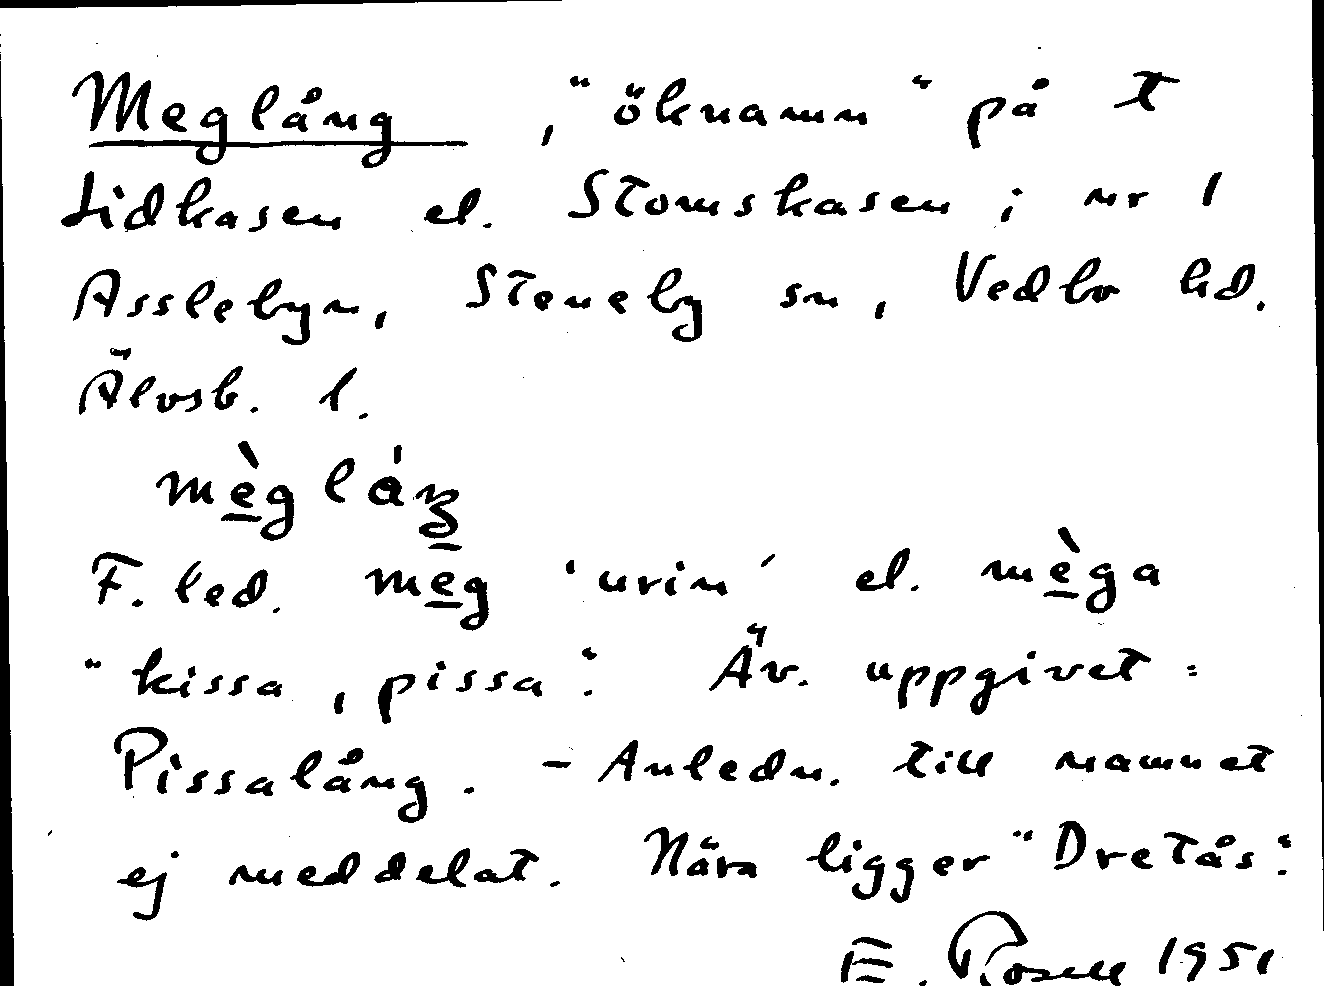 Meglång, "öknamn" på t
Lidkasen el. Stomskasen i nr 1
Asslebyn, Steneby sn, Vedbo hd.
Älvsb. l.
mègláŋ
F. led. meg 'urin' el. mèga
"kissa, pissa". Äv. uppgivet:
Pissalång. - Anledn. till namnet
ej meddelat. Nära ligger "Dretås".
E. Rosell 1951